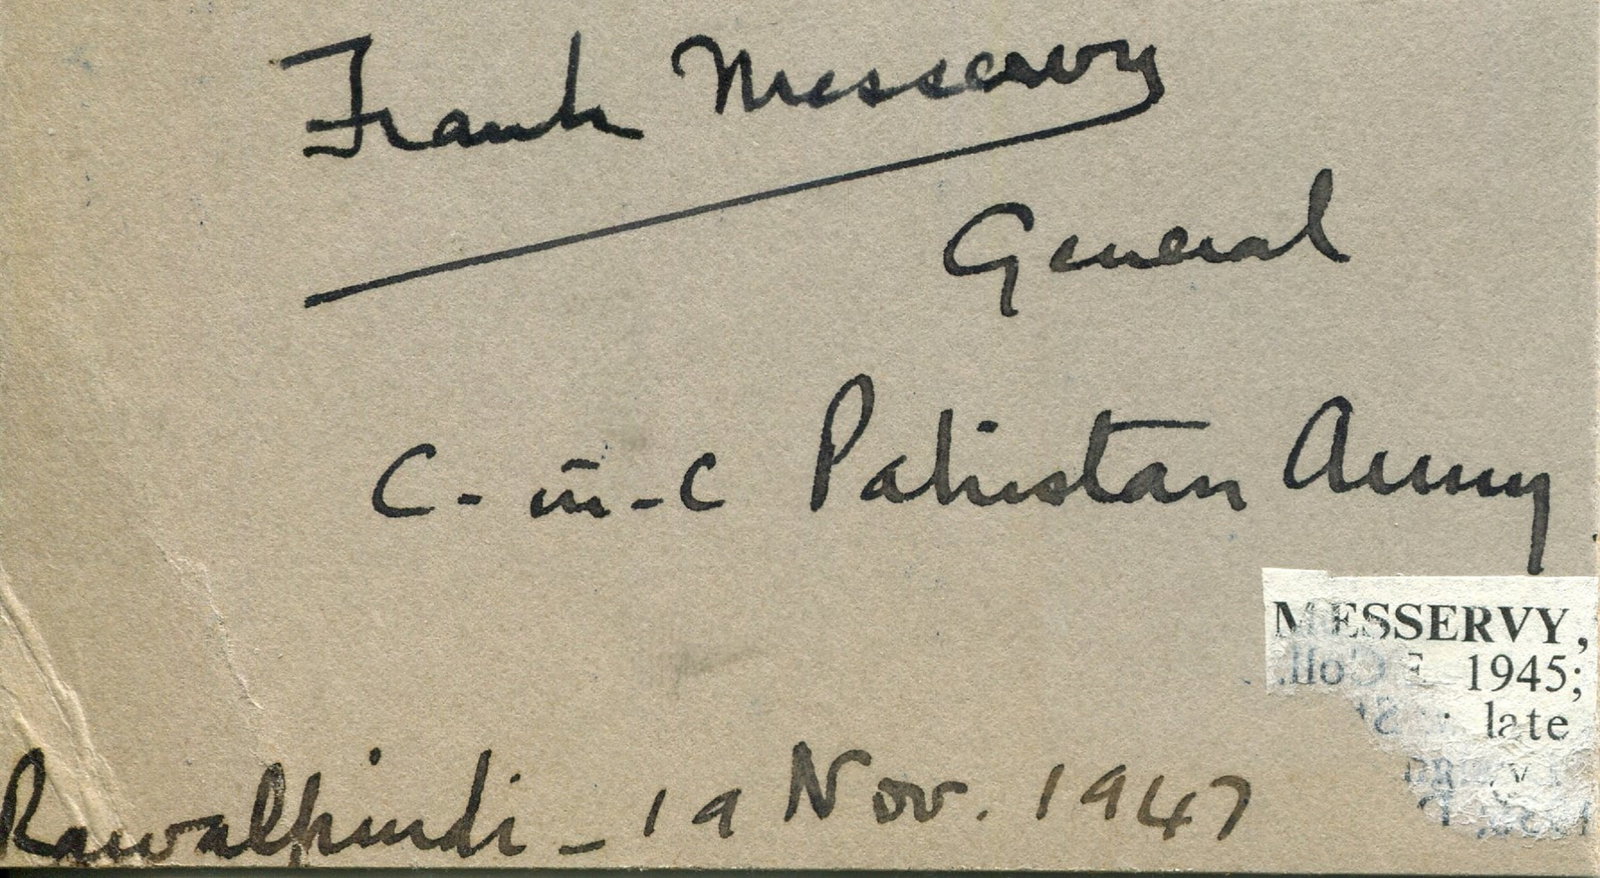 Frank Messervy
General
C-in-C Pakistan Army
MESSERVY,
1945;
late
Rawalpindi - 19 Nov. 1947